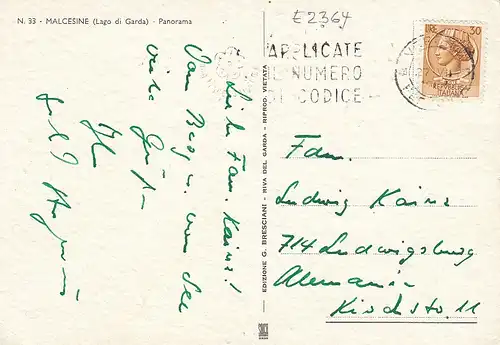 N. 33 - MALCESINE (Lago di Garda) - Panorama
E 2364
APPLICATE
IL NUMERO
DI CODICE
LIRE 30
REPVBBLICA
ITALIANA
Liebe Fam. Kainz!
Vom Berg u. vom See
viele Grüße
Ihr
EDIZIONE G. BRESCIANI - RIVA DEL GARDA - RIPROD. VIETATA
Fam.
Ludwig Kainz
714 Ludwigsburg
Alemania
Kirchstr. 11